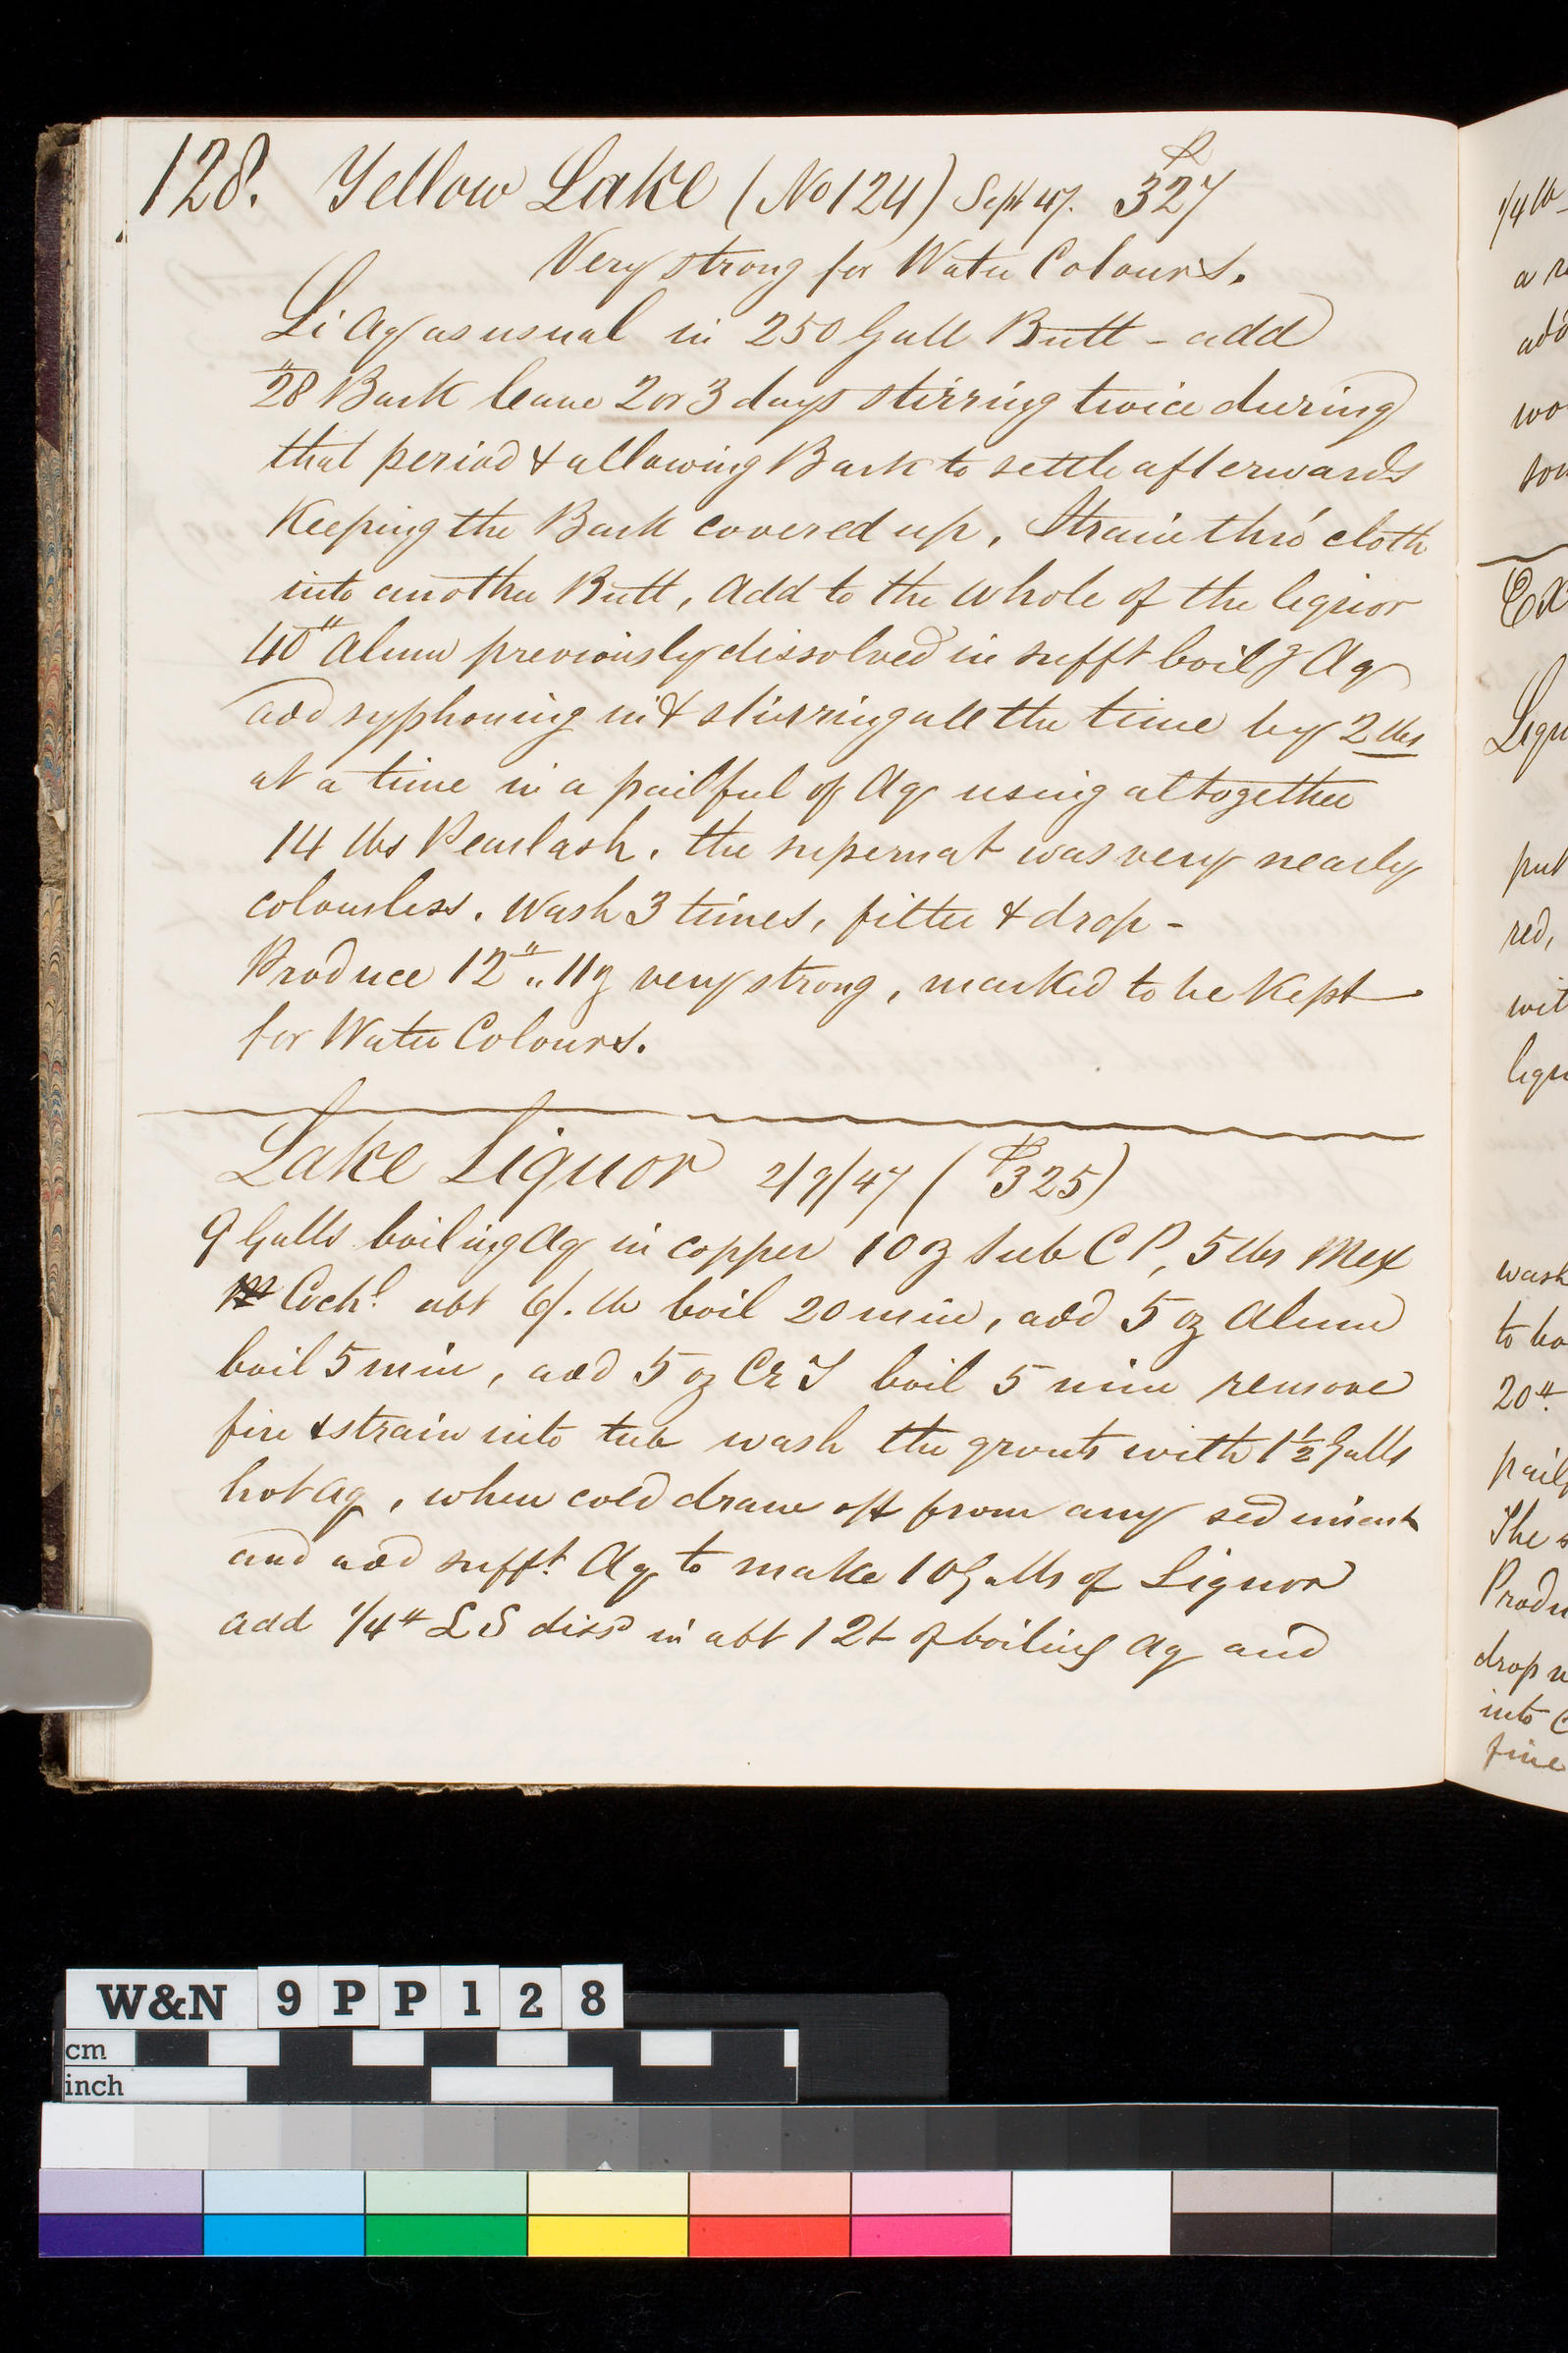 128. Yellow Lake (No 124) Sept 47. P 327
Very strong for Water Colours.
Li Aq as usual in 250 Gall Butt - add
28" Bark leave 2 or 3 days stirring twice during
that period & allowing Bark to settle afterwards
Keeping the Bark covered up, Strain thro' cloth
into another Butt, add to the whole of the liquor
40" Alum previously dissolved in sufft boilg Aq
add syphoning in & stirring all the time by 2 lbs
at a time in a pailful of Aq using altogether
14 lbs Pearlash. the supernat was very nearly
colourless. Wash 3 times, filter & drop -
Produce 12" .. 11 oz very strong, marked to be Kept
for Water Colours.
Lake Liquor 2/9/47 (P 325)
9 Galls boiling Aq in copper 10 oz Sub C P, 5 lbs Mex
Cochl abt 6/. lb boil 20 min, add 5 oz Alum
boil 5 min, add 5 oz Cr T boil 5 min remove
fire & strain into tub wash the grouts with 1 1/2 Galls
hot Aq, when cold draw off from any sediment
and add sufft Aq to make 10 Galls of Liquor
add 1/4" L S dissd in abt 1 2t of boiling Aq and
1/4 lb
a
add
wo
Ex
Liqu
put
red,
wit
liqu
wash
to bo
20"
pailf
The s
Produ
drop
into C
fine
W&N 9PP128
cm
inch